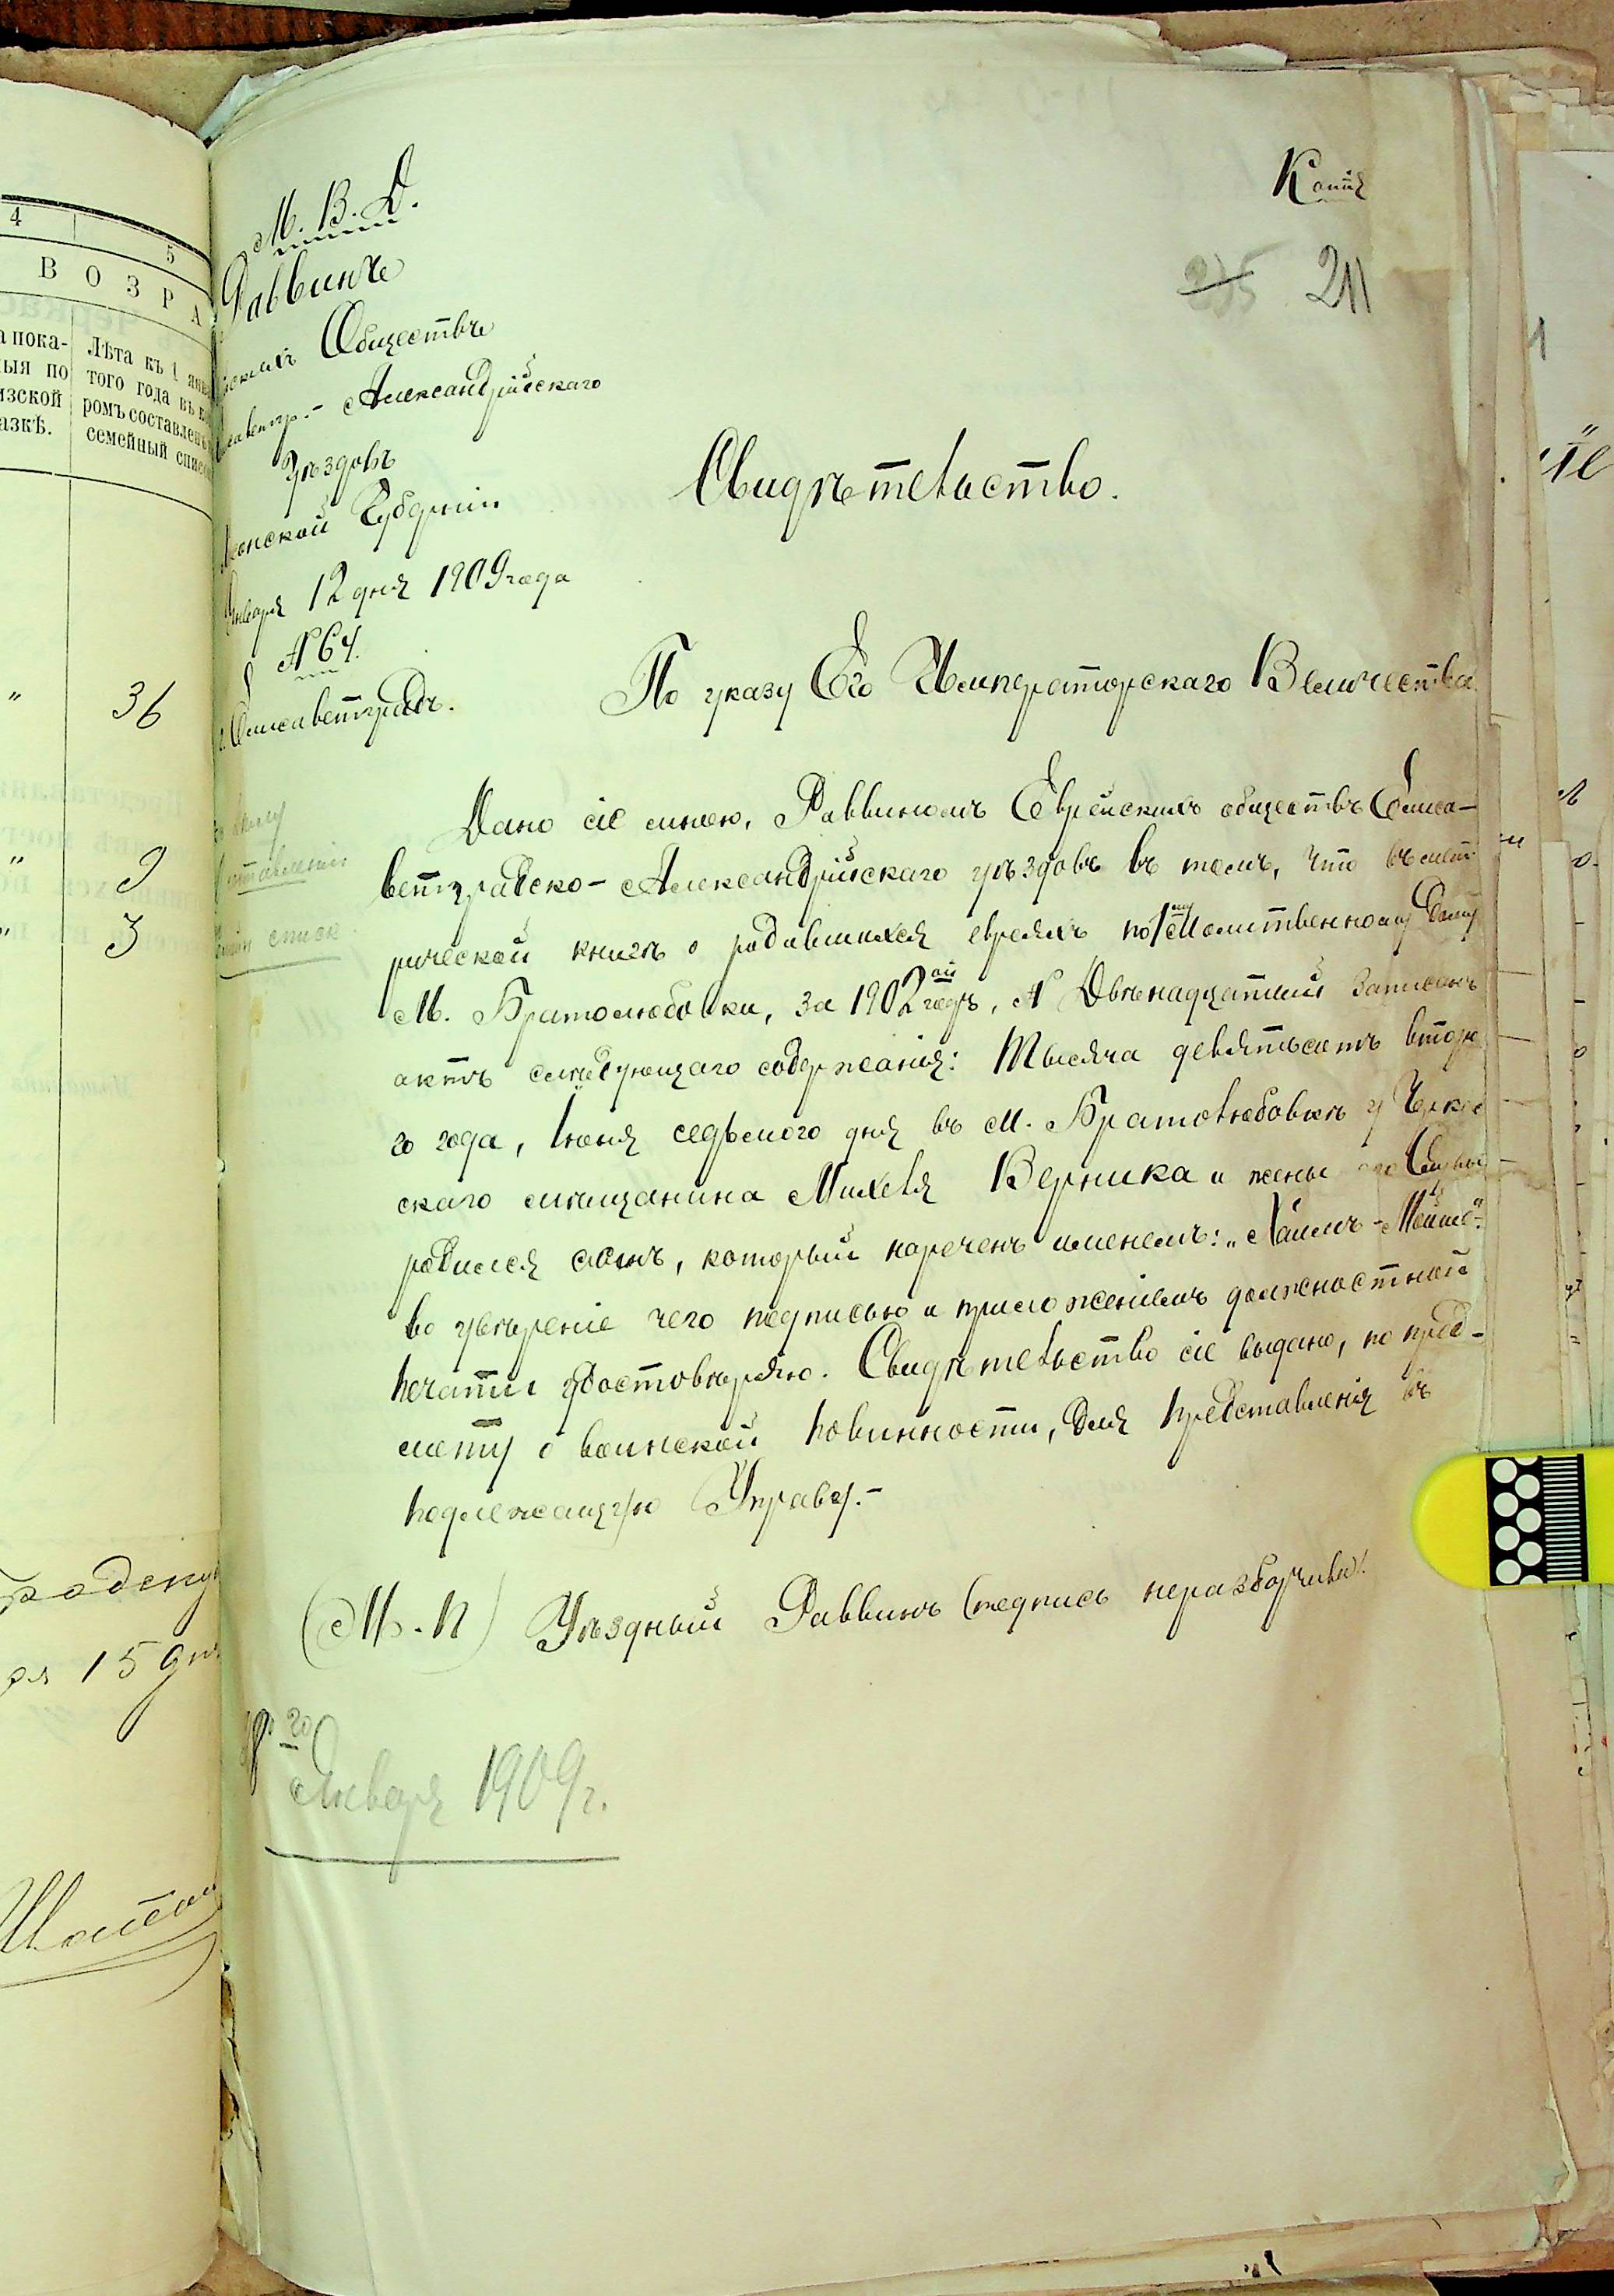 4
5
ВОЗРА
а пока-
ныя по
изской
азкѣ.
Лѣта къ 1 янв
того года въ ко
ромъ составлен
семейный списо
36
9
3
15 дн
Копія
235 211
М. В. Д.
Раввинъ
скихъ Обществъ
саветгр.- Александрійскаго
Уѣздовъ
сонской Губерніи
Января 12 дня 1909 года
№ 64.
г. Елисаветградъ.
списк.
Свидѣтельство.
По указу Его Императорскаго Величества
Дано сіе мною, Раввиномъ Еврейскихъ обществъ Елиса-
ветградско-Александрійскаго уѣздовъ въ томъ, что въ мет
рической книгѣ о родившихся евреяхъ по 1му Молитвенному Дому
М. Братолюбовки, за 1902ой годъ, № Двѣнадцатый записанъ
актъ слѣдующаго содержанія: Тысяча девятьсотъ второ
го года, Іюня седьмого дня въ М. Братолюбовкѣ у Черкас
скаго мѣщанина Михеля Верника и жены его
родился сынъ, который нареченъ именемъ: „Хаимъ-Мойше".
во увѣреніе чего подписью и приложеніемъ должностной
печати удостовѣряю. Свидѣтельство сіе выдано, по пред-
мету о воинской повинности, для представленія въ
подлежащую Управу.-
(М.П) Уѣздный Раввинъ (подпись неразборчива).
20
Января 1909 г.